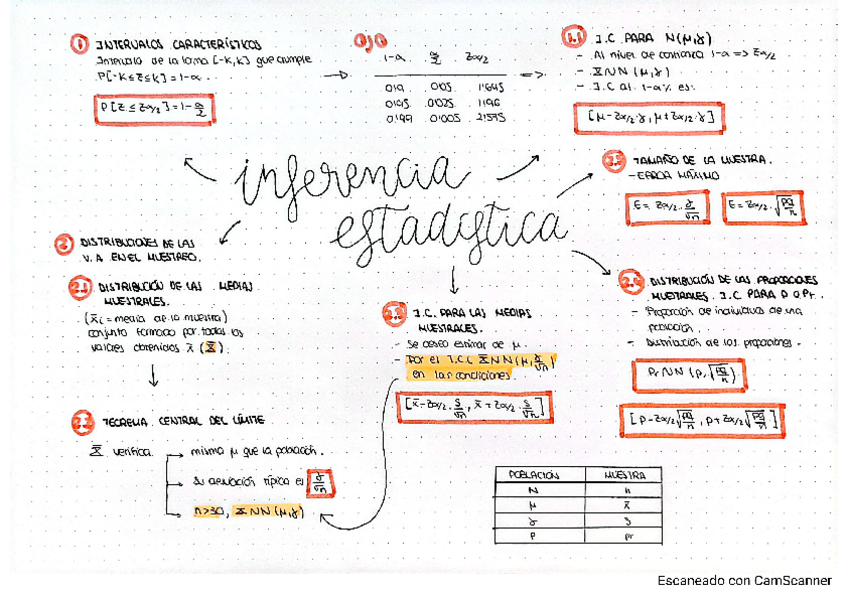 1 INTERVALOS CARACTERÍSTICOS
Intervalo de la forma [-K,K] que cumple
P[-K≤Z≤K]=1-α.
P[Z≤Zα/2]=1-α/2
OJO
1-α α/2 Zα/2
0'9 0'05 1'645
0'95 0'025 1'96
0'99 0'005 2'575
1.1 I.C PARA N(μ,σ)
- Al nivel de confianza 1-α => Zα/2
- X̄ N N (μ,σ)
- I.C al 1-α% es:
[μ-Zα/2·σ, μ+Zα/2·σ]
inferencia
estadística
TAMAÑO DE LA MUESTRA.
- ERROR MÁXIMO
E= Zα/2·σ/√n
E= Zα/2·√pq/n
2 DISTRIBUCIONES DE LAS
V.A EN EL MUESTREO.
2.1 DISTRIBUCIÓN DE LAS MEDIAS
MUESTRALES.
(x̄i = media de la muestra)
conjunto formado por todos los
valores obtenidos x̄ (X̄)
2.2 TEOREMA CENTRAL DEL LÍMITE
X̄ verifica
misma μ que la población.
Su desviación típica es σ/√n
n>30, X̄ N N (μ,σ)
2.3 I.C. PARA LAS MEDIAS
MUESTRALES.
- Se desea estimar de μ.
- Por el T.C.L X̄ N N (μ,σ/√n)
en las condiciones.
[x̄-Zα/2·S/√n, x̄+Zα/2·S/√n]
2.4 DISTRIBUCIÓN DE LAS PROPORCIONES
MUESTRALES. I.C PARA P O Pr.
- Proporción de individuos de una
población.
- Distribución de las proporciones.
Pr N N (P, √pq/n)
[P-Zα/2√pq/n, P+Zα/2√pq/n]
POBLACIÓN MUESTRA
N n
μ x̄
σ S
P pr
Escaneado con CamScanner